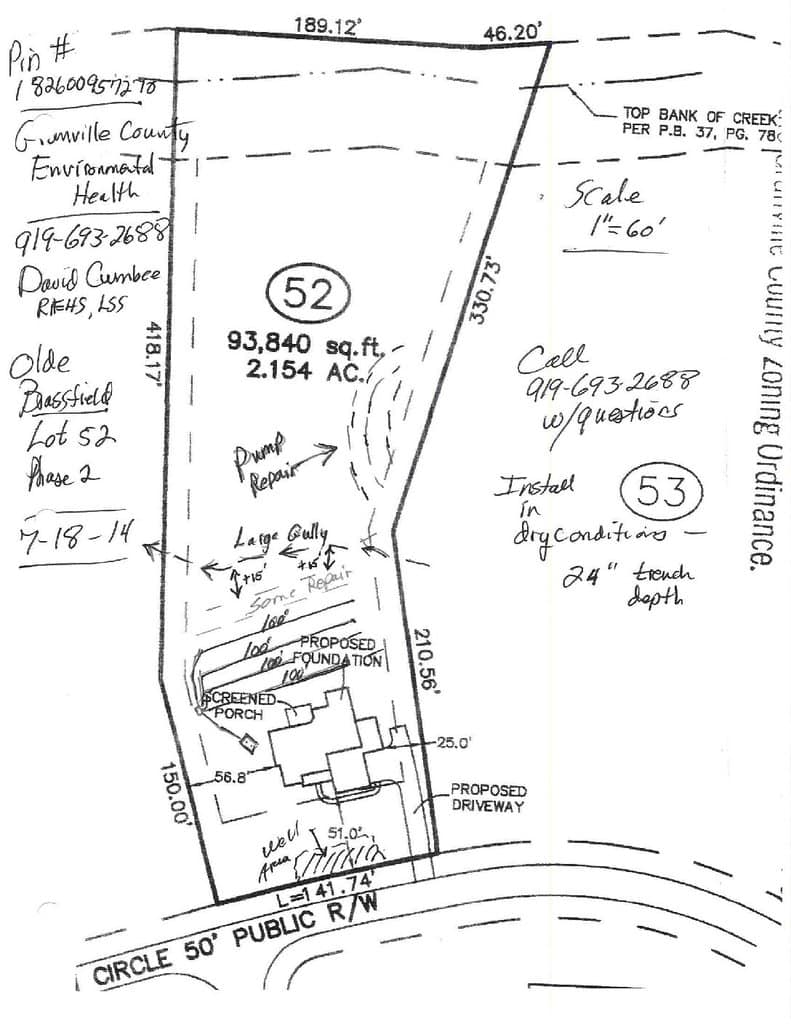 189.12'
46.20'
Pin #
182600957278
TOP BANK OF CREEK
PER P.B. 37, PG. 78
County
Environmental
Health
Scale
1"=60'
919-693-2688
David Cumbee
REHS, LSS
52
93,840 sq.ft.
2.154 AC.
330.73'
418.17'
County Zoning Ordinance.
Olde
Brassfield
Lot 52
Phase 2
7-18-14
Call
919-693-2688
w/questions
Pump
Repair
Install
in
dry conditions –
24" trench
depth
53
Large Gully
+15'
+15'
Some Repair
100'
100'
100'
100'
PROPOSED
FOUNDATION
SCREENED
PORCH
210.56'
25.0'
56.8'
150.00'
PROPOSED
DRIVEWAY
Well
Area
51.0'
L=141.74'
CIRCLE 50' PUBLIC R/W